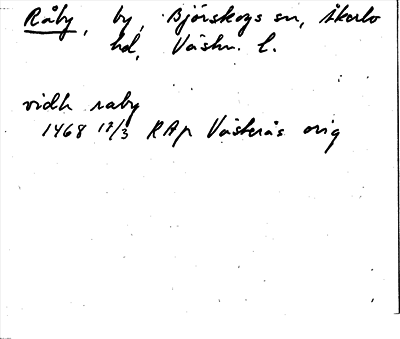 Råby, by, Björskogs sn, Åkerbo
hd, Västm. l.
vidh raby
1468 12/3 RAp Västerås orig